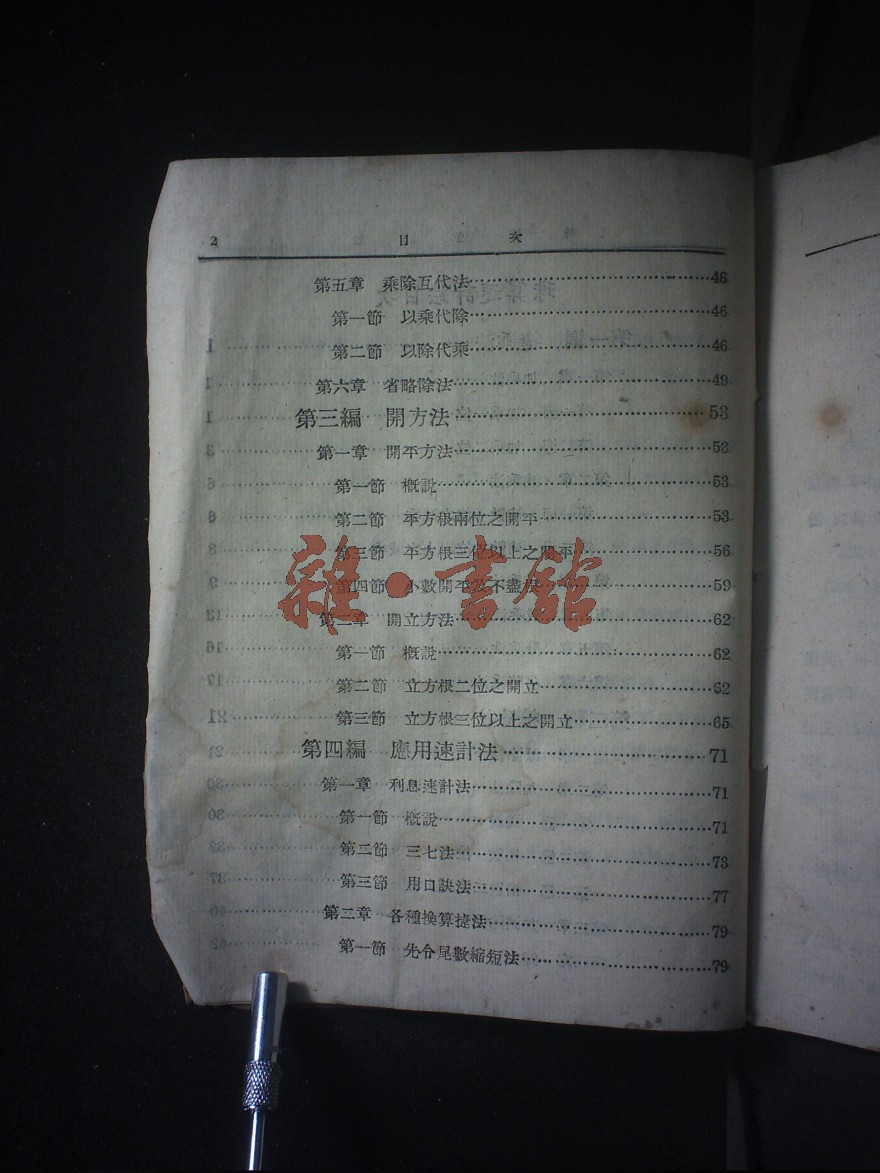 2 目次
第五章 乘除互代法 46
第一節 以乘代除 46
第二節 以除代乘 46
第六章 省略除法 49
第三編 開方法 53
第一章 開平方法 53
第一節 概說 53
第二節 平方根兩位之開平 53
第三節 平方根三位以上之開平 56
第四節 小數開平及不盡根 59
第二章 開立方法 62
第一節 概說 62
第二節 立方根二位之開立 62
第三節 立方根三位以上之開立 65
第四編 應用速計法 71
第一章 利息速計法 71
第一節 概說 71
第二節 三七法 73
第三節 用口訣法 77
第二章 各種換算捷法 79
第一節 先令尾數縮短法 79
雜·書館